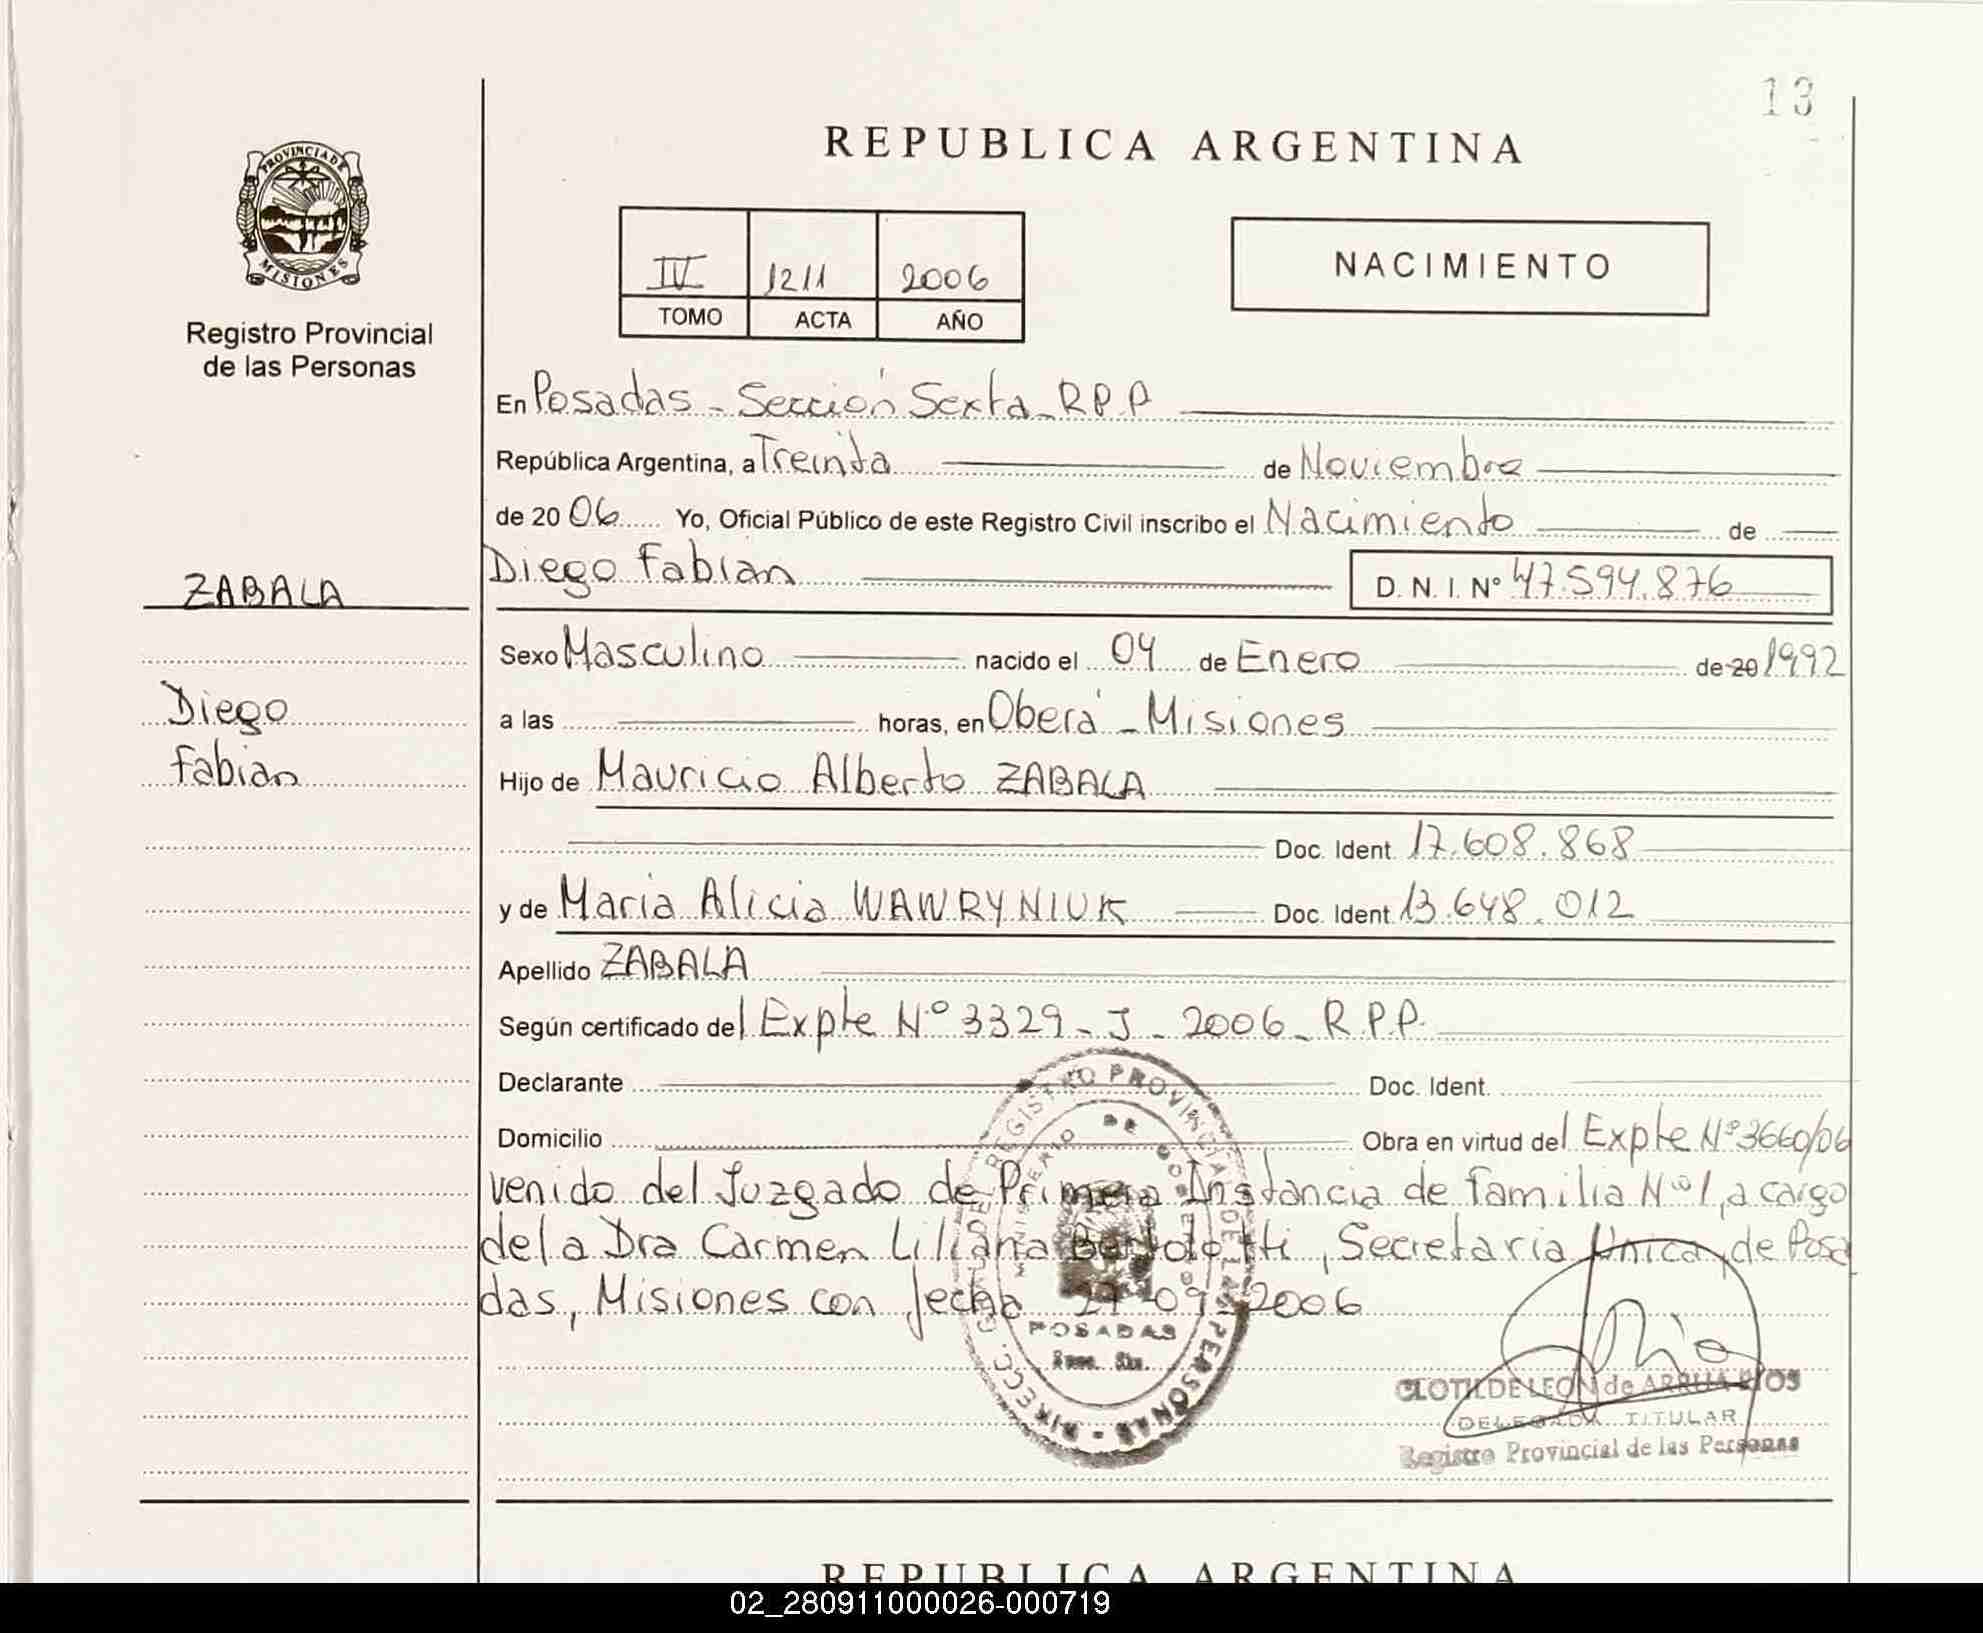 13
REPUBLICA ARGENTINA
PROVINCIA DE
MISIONES
Registro Provincial
de las Personas
IV 1211 2006
TOMO ACTA AÑO
NACIMIENTO
En Posadas - Sección Sexta - R P P
República Argentina, a Treinta de Noviembre
de 20 06 Yo, Oficial Público de este Registro Civil inscribo el Nacimiento de
ZABALA
Diego Fabian D. N. I. Nº 47.594.876
Sexo Masculino nacido el 04 de Enero de 20 1992
Diego
a las horas, en Oberá - Misiones
Fabian
Hijo de Mauricio Alberto ZABALA
Doc. Ident. 17.608.868
y de Maria Alicia WAWRYNIUK Doc. Ident. 13.648.012
Apellido ZABALA
Según certificado del Expte Nº 3329 - J - 2006 - R.P.P.
Declarante Doc. Ident.
Domicilio Obra en virtud del Expte Nº 3660/06
venido del Juzgado de Primera Instancia de Familia Nº 1, a cargo
de la Dra Carmen Liliana Bertolotti, Secretaria Unica, de Posa
das, Misiones con fecha 09-2006
REGISTRO PROVINCIAL DE LAS PERSONAS - DIRECC. GRAL. DE
MINISTERIO DE GOBIERNO
POSADAS
CLOTILDE LEON de ARRUA RIOS
DELEGADA TITULAR
Registro Provincial de las Personas
REPUBLICA ARGENTINA
02_280911000026-000719